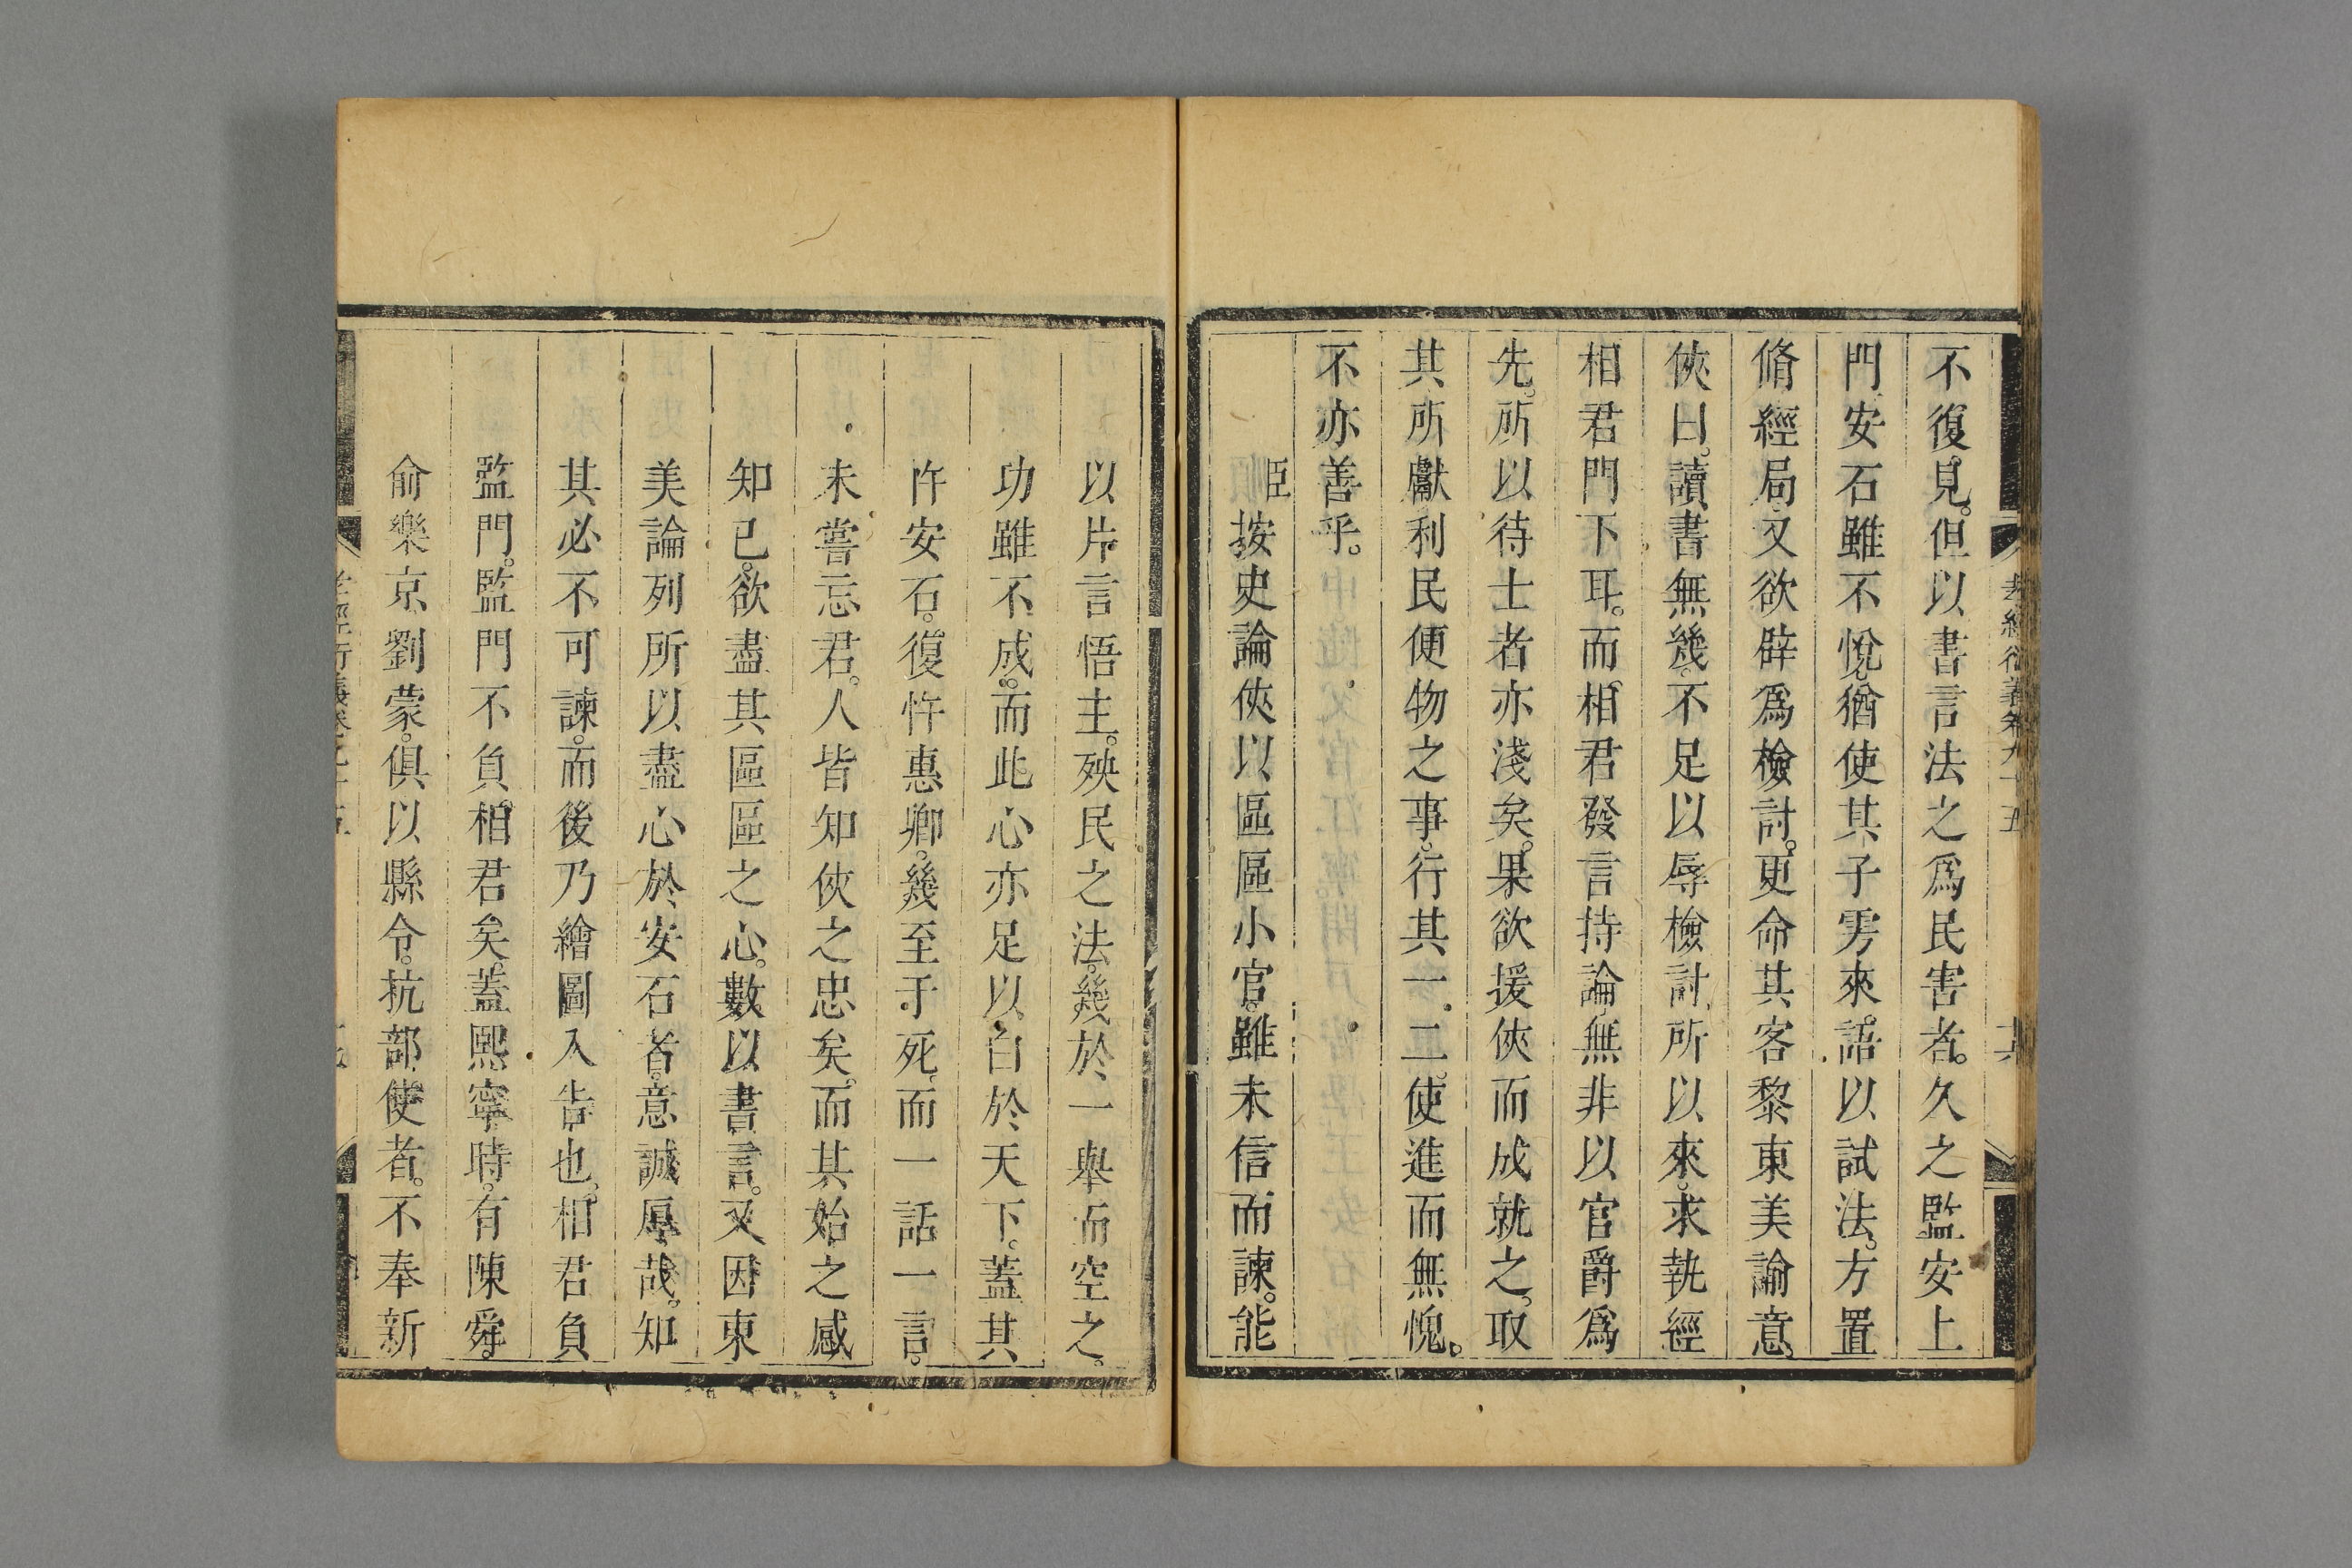 孝經衍義卷九十五
不復見。但以書言法之爲民害者。久之監安上
門安石雖不悅。猶使其子雱來。語以試法。方置
脩經局。又欲辟爲檢討。更命其客黎東美諭意。
俠曰。讀書無幾。不足以辱檢討。所以來。求執經
相君門下耳。而相君發言持論。無非以官爵爲
先。所以待士者亦淺矣。果欲援俠而成就之。取
其所獻利民便物之事。行其一二。使進而無愧。
不亦善乎。
臣順按。史論俠以區區小官。雖未信而諫。能
以片言悟主。殃民之法。幾於一舉而空之。
功雖不成。而此心亦足以白於天下。蓋其
忤安石。復忤惠卿。幾至于死。而一話一言。
未嘗忘君。人皆知俠之忠矣。而其始之感
知已。欲盡其區區之心。數以書言。又因東
美論列所以盡心於安石者。意誠厚哉。知
其必不可諫。而後乃繪圖入告也。相君負
監門。監門不負相君矣。蓋熙寧時。有陳舜。
俞樂京劉蒙。俱以縣令。抗部使者。不奉新